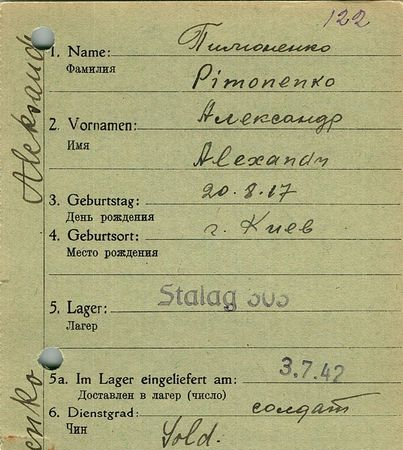 122
1. Name: Пимоненко
Фамилия
Pimonenko
2. Vornamen: Александр
Имя
Alexandr
3. Geburtstag: 20.8.17
День рождения
4. Geburtsort: г. Киев
Место рождения
5. Lager: Stalag 303
Лагер
5a. Im Lager eingeliefert am: 3.7.42
Доставлен в лагер (число)
6. Dienstgrad: солдат
Чин
Sold.
Aleksand
enko